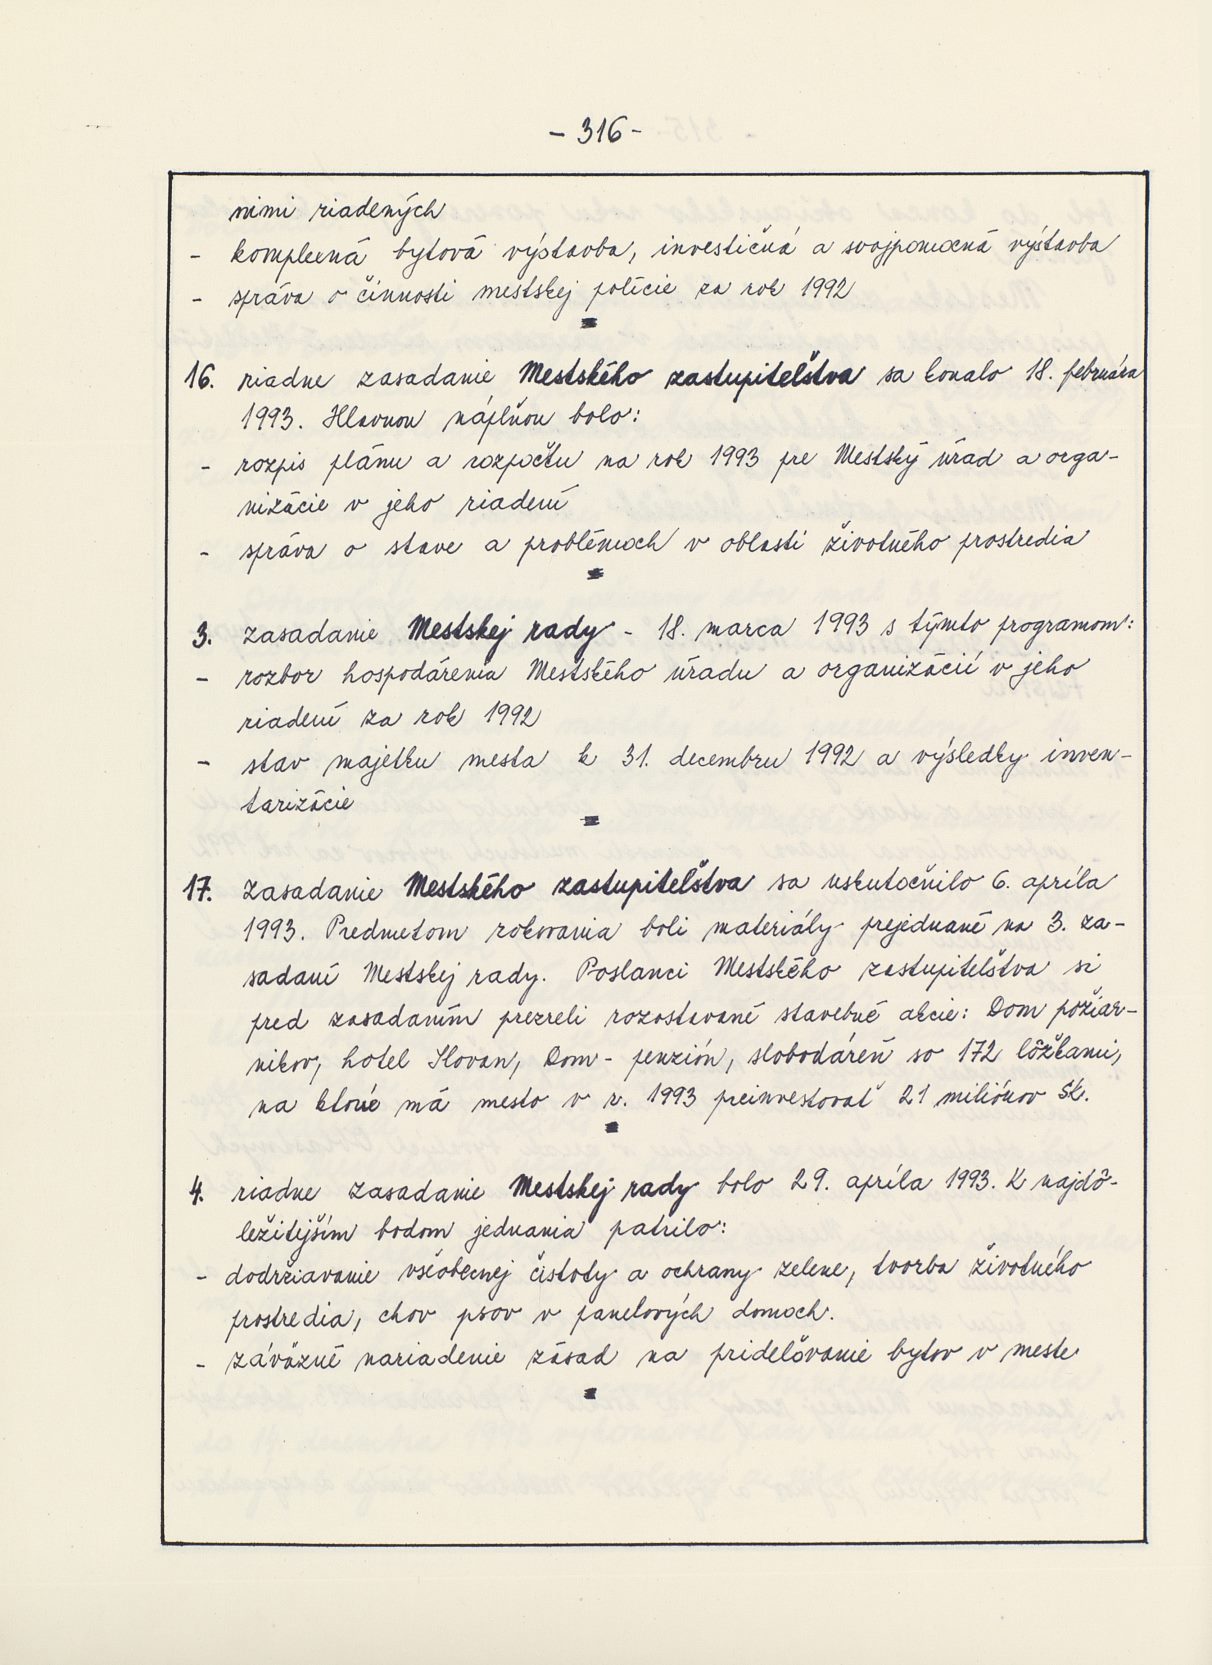 - 316 -
nimi riadených
- komplexná bytová výstavba, investičná a svojpomocná výstavba
- správa o činnosti mestskej polície za rok 1992
16. riadne zasadanie Mestského zastupiteľstva sa konalo 18. februára
1993. Hlavnou náplňou bolo:
- rozpis plánu a rozpočtu na rok 1993 pre Mestský úrad a orga-
nizácie v jeho riadení
- správa o stave a problémoch v oblasti životného prostredia
3. zasadanie Mestskej rady - 18. marca 1993 s týmto programom:
- rozbor hospodárenia Mestského úradu a organizácií v jeho
riadení za rok 1992
- stav majetku mesta k 31. decembru 1992 a výsledky inven-
tarizácie
17. zasadanie Mestského zastupiteľstva sa uskutočnilo 6. apríla
1993. Predmetom rokovania boli materiály prejednané na 3. za-
sadaní Mestskej rady. Poslanci Mestského zastupiteľstva si
pred zasadaním prezreli rozostavané stavebné akcie: Dom požiar-
nikov, hotel Slovan, Dom - penzión, slobodáreň so 172 lôžkami,
na ktoré má mesto v r. 1993 preinvestovať 21 miliónov Sk.
4. riadne zasadanie Mestskej rady bolo 29. apríla 1993. K najdô-
ležitejším bodom jednania patrilo:
- dodržiavanie všeobecnej čistoty a ochrany zelene, tvorba životného
prostredia, chov psov v panelových domoch.
- záväzné nariadenie zásad na prideľovanie bytov v meste